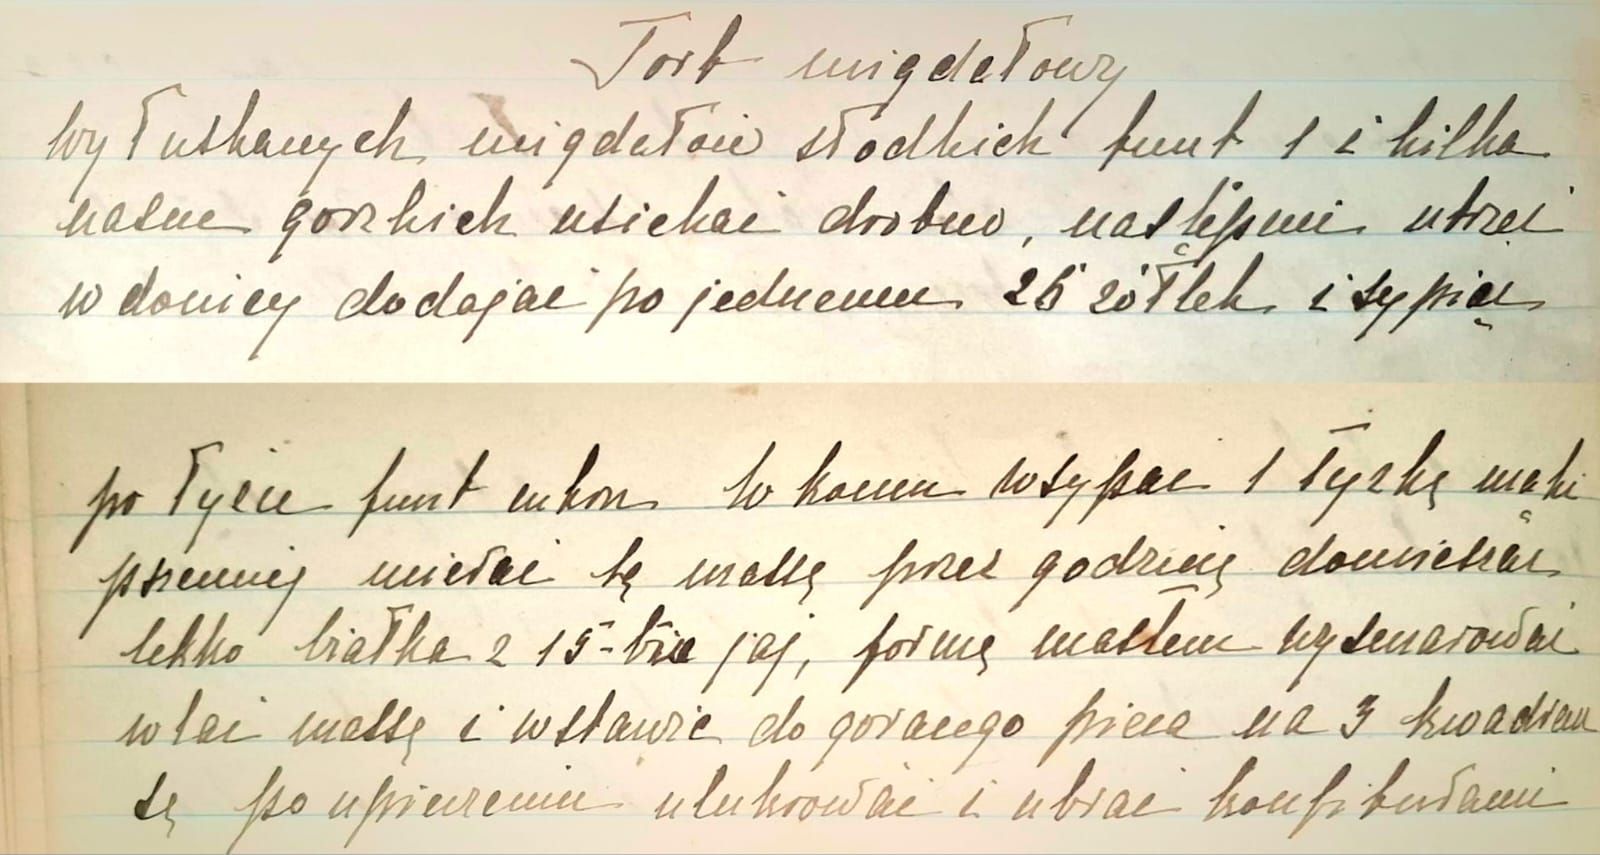 Tort migdałowy
Wyłuskanych migdałów słodkich funt 1 i kilka
nasne gorzkich usiekać drobno, następnie utrzeć
w donicy dodając po jednemu 25 żółtek i sypiąc
po łyżce funt cukru W koncu wsypać 1 łyżkę mąki
pszennej mieszać tę massę przez godzinę domieszać
lekko białka z 15-tu jaj, formę masłem wysmarować
wlać massę i wstawić do gorącego pieca na 3 kwadran
sę po upieczeniu ulukrować i ubrać konfiturami